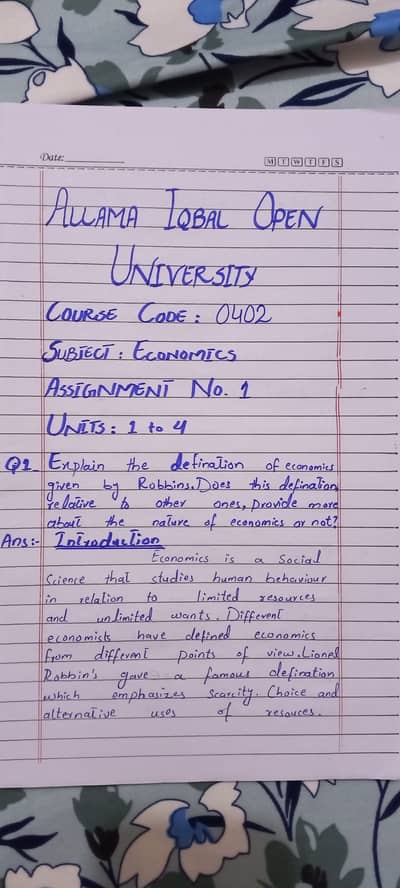 Date:
M T W T F S
ALLAMA IQBAL OPEN
UNIVERSITY
COURSE CODE: 0402
SUBJECT: ECONOMICS
ASSIGNMENT No. 1
UNITS: 1 to 4
Q1 Explain the defination of economics
given by Robbins. Does this defination
relative to other ones, provide more
about the nature of economics or not?
Ans:- Introduction
Economics is a Social
Science that studies human behaviour
in relation to limited resources
and unlimited wants. Different
economists have defined economics
from different points of view. Lionel
Robbin's gave a famous defination
which emphasizes scarcity. Choice and
alternative uses of resouces.